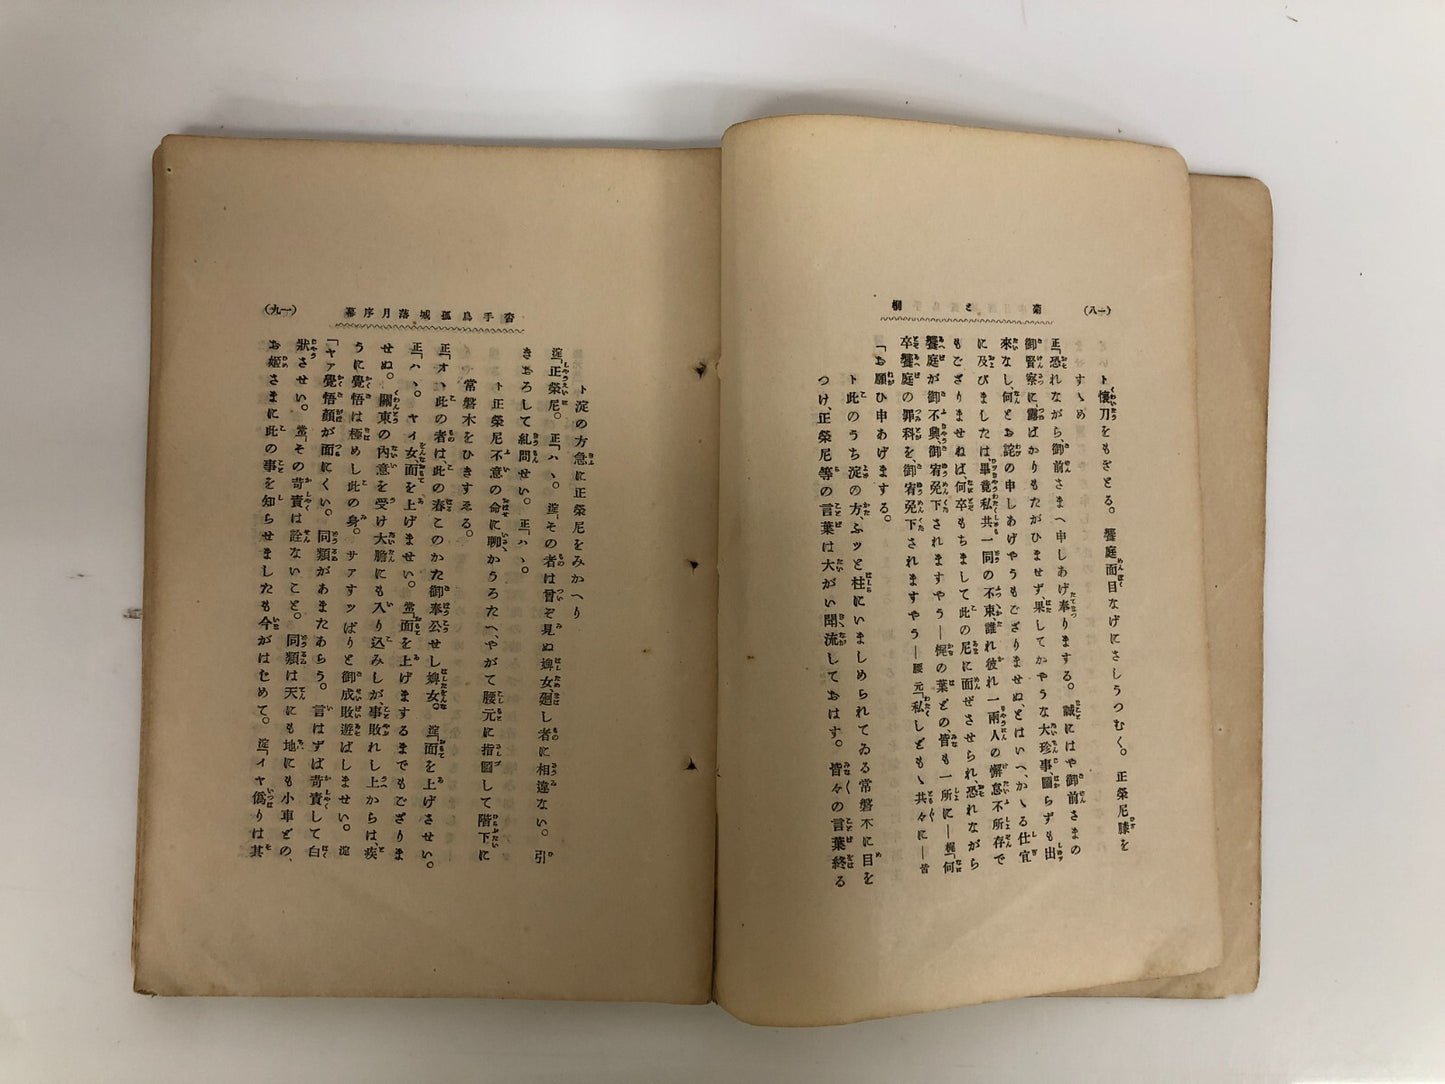 (一八)
菊と桐
ト懐刀をもぎとる。饗庭面目なげにさしうつむく。正榮尼膝を
すゝめ
正「恐れながら、御前さまへ申しあげ奉りまする。誠にはや御前さまの
御賢察に、露ばかりもたがひませず、果してかやうな大珍事、圖らずも出
來なし、何とお詫の申しあげやうもござりませぬ、とはいへ、かゝる仕宜
に及びましたは、畢竟私共一同の不束、誰れ彼れ一兩人の懈怠不所存で
もござりませねば何卒もちまして此の尼に面ぜさせられ、恐れながら
饗庭が御不興、御宥免下されますやう―梶の葉どの、皆も一所に―梶「何
卒饗庭の罪科を、御宥免下されますやう―腰元「私しどもゝ共々に―皆
「お願ひ申あげまする。
ト此のうち淀の方、ふッと柱にいましめられてゐる常磐木に目を
つけ、正榮尼等の言葉は大がい聞流しておはす。皆々の言葉終る
沓手鳥孤城落月序幕
(一九)
ト淀の方急に正榮尼をみかへり
淀「正榮尼。正「ハヽ。淀「その者は曾ぞ見ぬ婢女、廻し者に相違ない。引
きおろして糺問せい。正「ハヽ。
ト正榮尼不意の命に聊かうろたへ、やがて腰元に指圖して階下に
常磐木をひきすゑる。
正「オヽ此の者は此の春このかた御奉公せし婢女。淀「面を上げさせい。
正「ハヽ。ヤイ女、面を上げませい。常「面を上げまするまでもござりま
せぬ。關東の內意を受け大膽にも入り込みしが、事敗れし上からは、疾
うに覺悟は極めし此の身。サアすッぱりと御成敗遊ばしませい。淀
「ヤァ覺悟顏が面にくい。同類があまたあらう。言はずば苛責して白
狀させい。常「その苛責は詮ないこと。同類は天にも地にも小車どの、
お姬さまに此の事を知らせましたも今がはじめて。淀「イヤ僞りは其